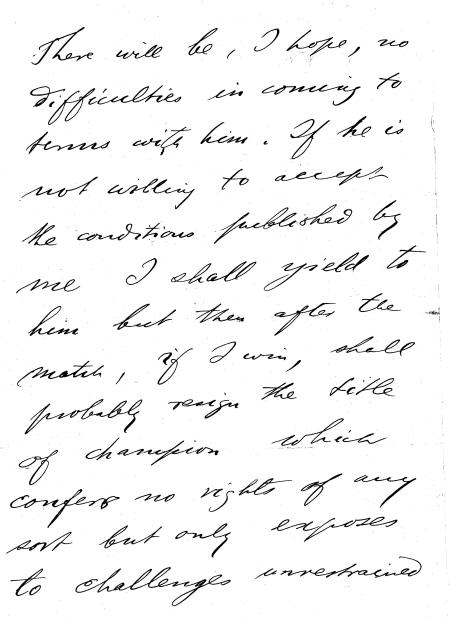 There will be, I hope, no
difficulties in coming to
terms with him. If he is
not willing to accept
the conditions published by
me I shall yield to
him but then after the
match, if I win, shall
probably resign the title
of champion which
confers no rights of any
sort but only exposes
to challenges unrestrained